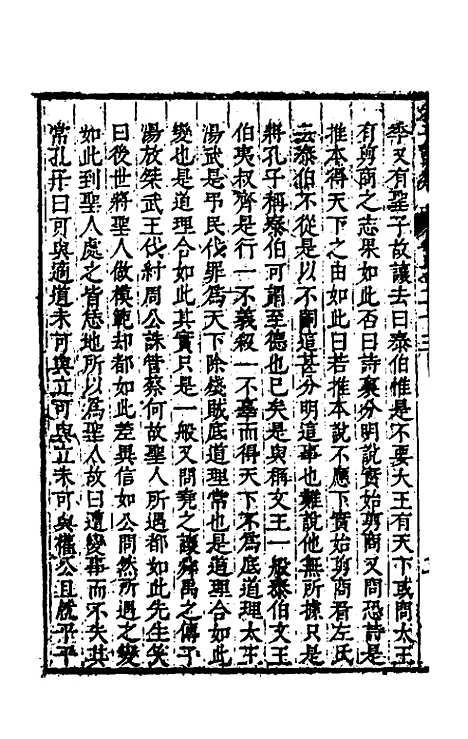 季又有聖子故讓去曰泰伯惟是不要大王有天下或問太王
有翦商之志果如此否曰詩裏分明說實始翦商又問恐詩是
推本得天下之由如此曰若推本說不應下實始翦商看左氏
云泰伯不從是以不嗣這甚分明這事也難說他無所據只是
將孔子稱泰伯可謂至德也已矣是與稱文王一般泰伯文王
伯夷叔齊是行一不義殺一不辜而得天下不為底道理太王
湯武是弔民伐罪為天下除殘賊底道理常也是道理合如此
變也是道理合如此其實只是一般又問堯之讓舜禹之傳子
湯放桀武王伐紂周公誅管蔡何故聖人所遇都如此先生笑
曰後世將聖人做模範却都如此差異信如公問然所遇之變
如此到聖人處之皆恁地所以為聖人故曰遭變事而不失其
常孔子曰可與適道未可與立可與立未可與權公且就平平